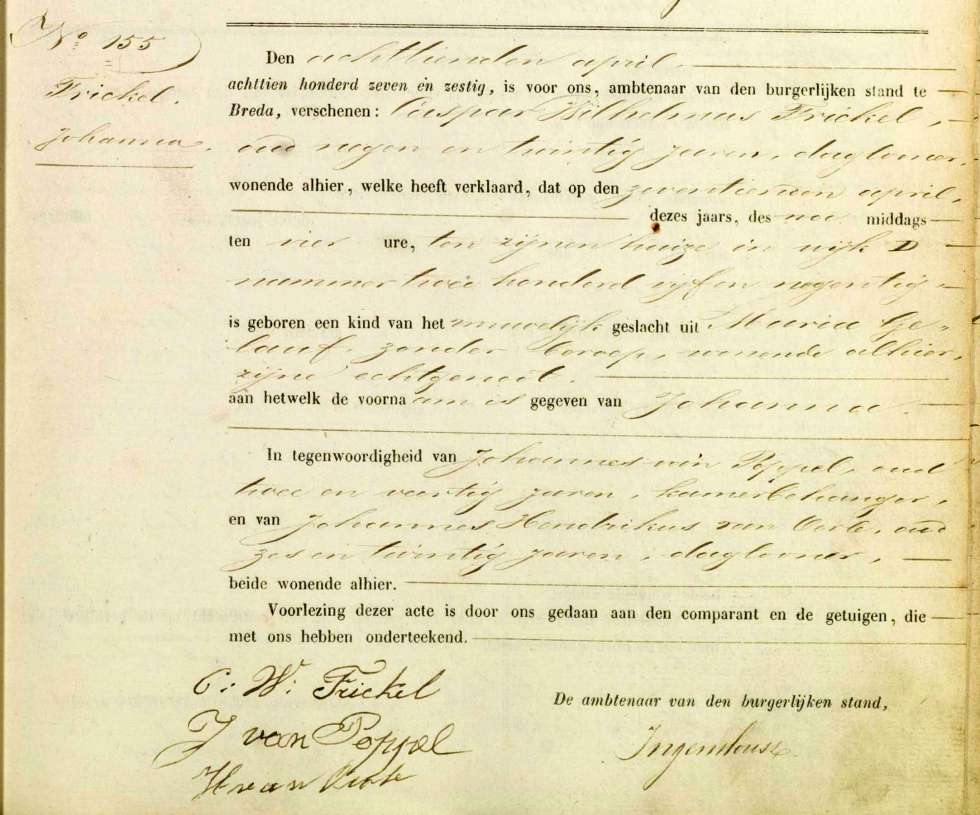 No 155
Frickel.
Johanna.
Den achttienden april
achttien honderd zeven en zestig, is voor ons, ambtenaar van den burgerlijken stand te
Breda, verschenen: Caspar Wilhelmus Frickel,
oud negen en twintig jaren, daglooner,
wonende alhier, welke heeft verklaard, dat op den zeventienden april,
dezes jaars, des na middags
ten vier ure, ten zijnen huize in wijk D
nummer twee honderd vijf en negentig
is geboren een kind van het vrouwelijk geslacht uit Maria Ge-
lauf, zonder beroep, wonende alhier,
zijne echtgenoot.
aan hetwelk de voorna am is gegeven van Johanna.
In tegenwoordigheid van Johannes van Poppel, oud
twee en veertig jaren, kamerbehanger,
en van Johannes Hendrikus van Oorle, oud
zes en twintig jaren, daglooner,
beide wonende alhier.
Voorlezing dezer acte is door ons gedaan aan den comparant en de getuigen, die
met ons hebben onderteekend.
C: W: Frickel
De ambtenaar van den burgerlijken stand,
J van Poppel
Ingenhousz
H van